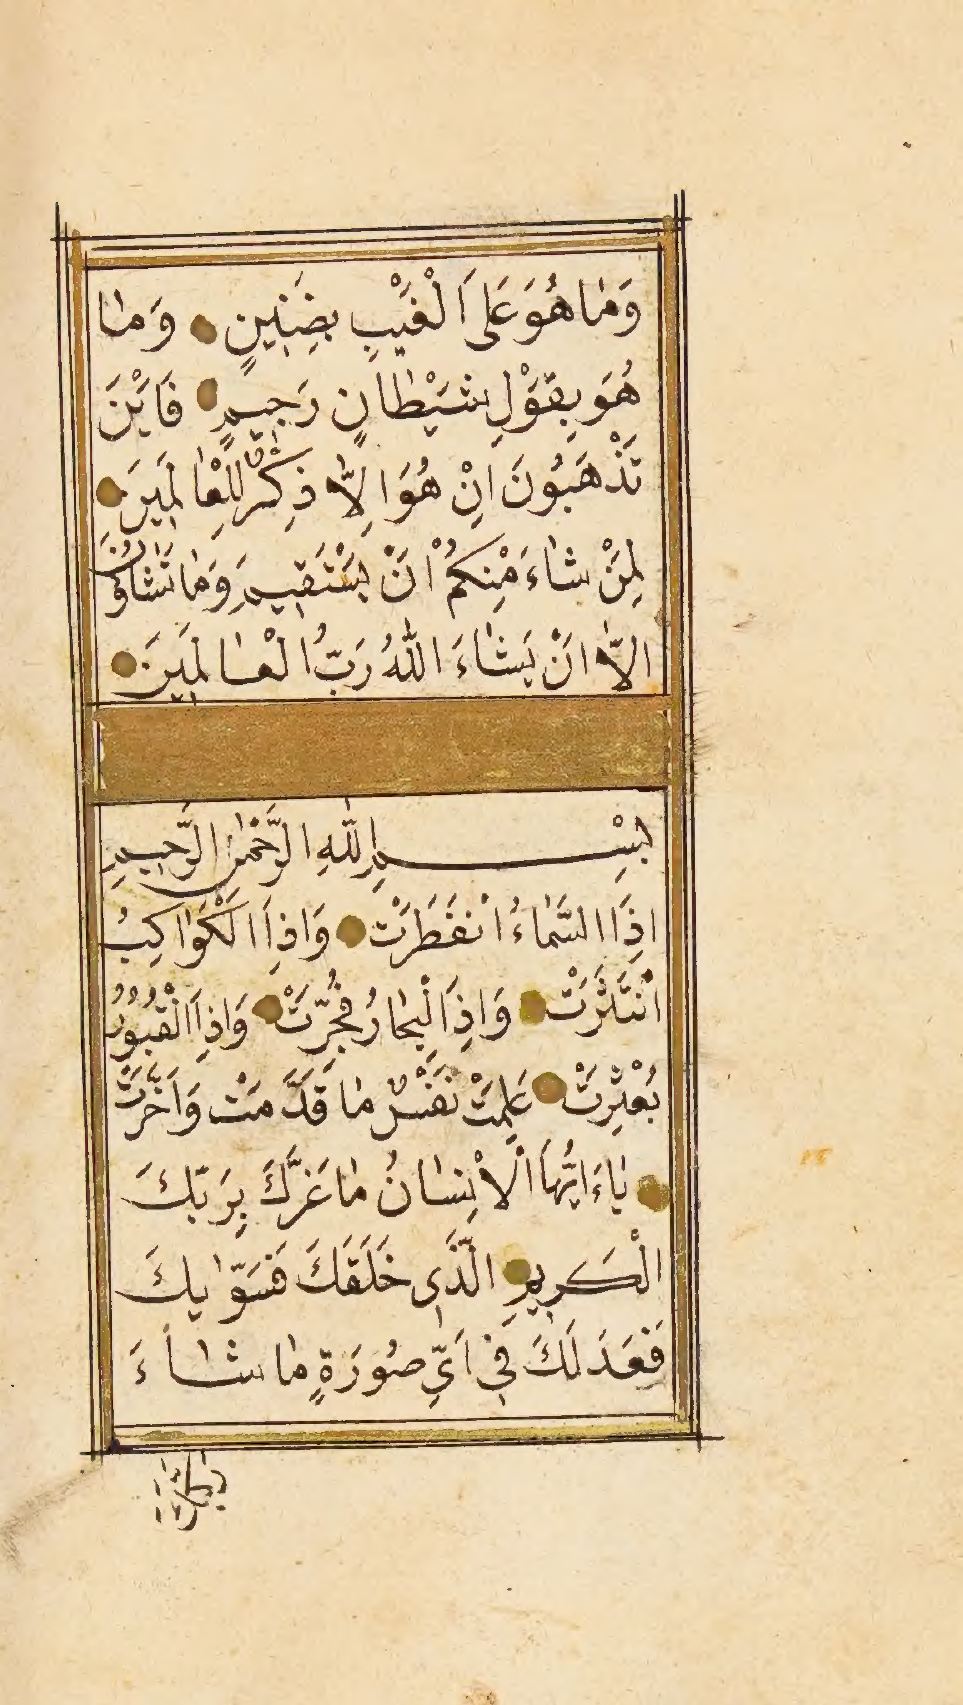 وَمَا هُوَ عَلَى الْغَيْبِ بِضَنِينٍ وَمَا
هُوَ بِقَوْلِ شَيْطَانٍ رَجِيمٍ فَايْنَ
تَذْهَبُونَ اِنْ هُوَ اِلَّا ذِكْرٌ لِلْعَالَمِينَ
لِمَنْ شَاءَ مِنْكُمْ اَنْ يَسْتَقِيمَ وَمَا تَشَاؤُنَ
اِلَّا اَنْ يَشَاءَ اللّٰهُ رَبُّ الْعَالَمِينَ
بِسْمِ اللّٰهِ الرَّحْمٰنِ الرَّحِيمِ
اِذَا السَّمَاءُ انْفَطَرَتْ وَاِذَا الْكَوَاكِبُ
انْتَثَرَتْ وَاِذَا الْبِحَارُ فُجِّرَتْ وَاِذَا الْقُبُورُ
بُعْثِرَتْ عَلِمَتْ نَفْسٌ مَا قَدَّمَتْ وَاَخَّرَتْ
يَاءَ ايُّهَا الْاِنْسَانُ مَا غَرَّكَ بِرَبِّكَ
الْكَرِيمِ الَّذِى خَلَقَكَ فَسَوّٰيكَ
فَعَدَلَكَ فِى اَىِّ صُورَةٍ مَا شَاءَ